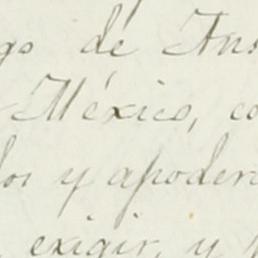 go de Ins
México, co
los y apoder
exigir, y